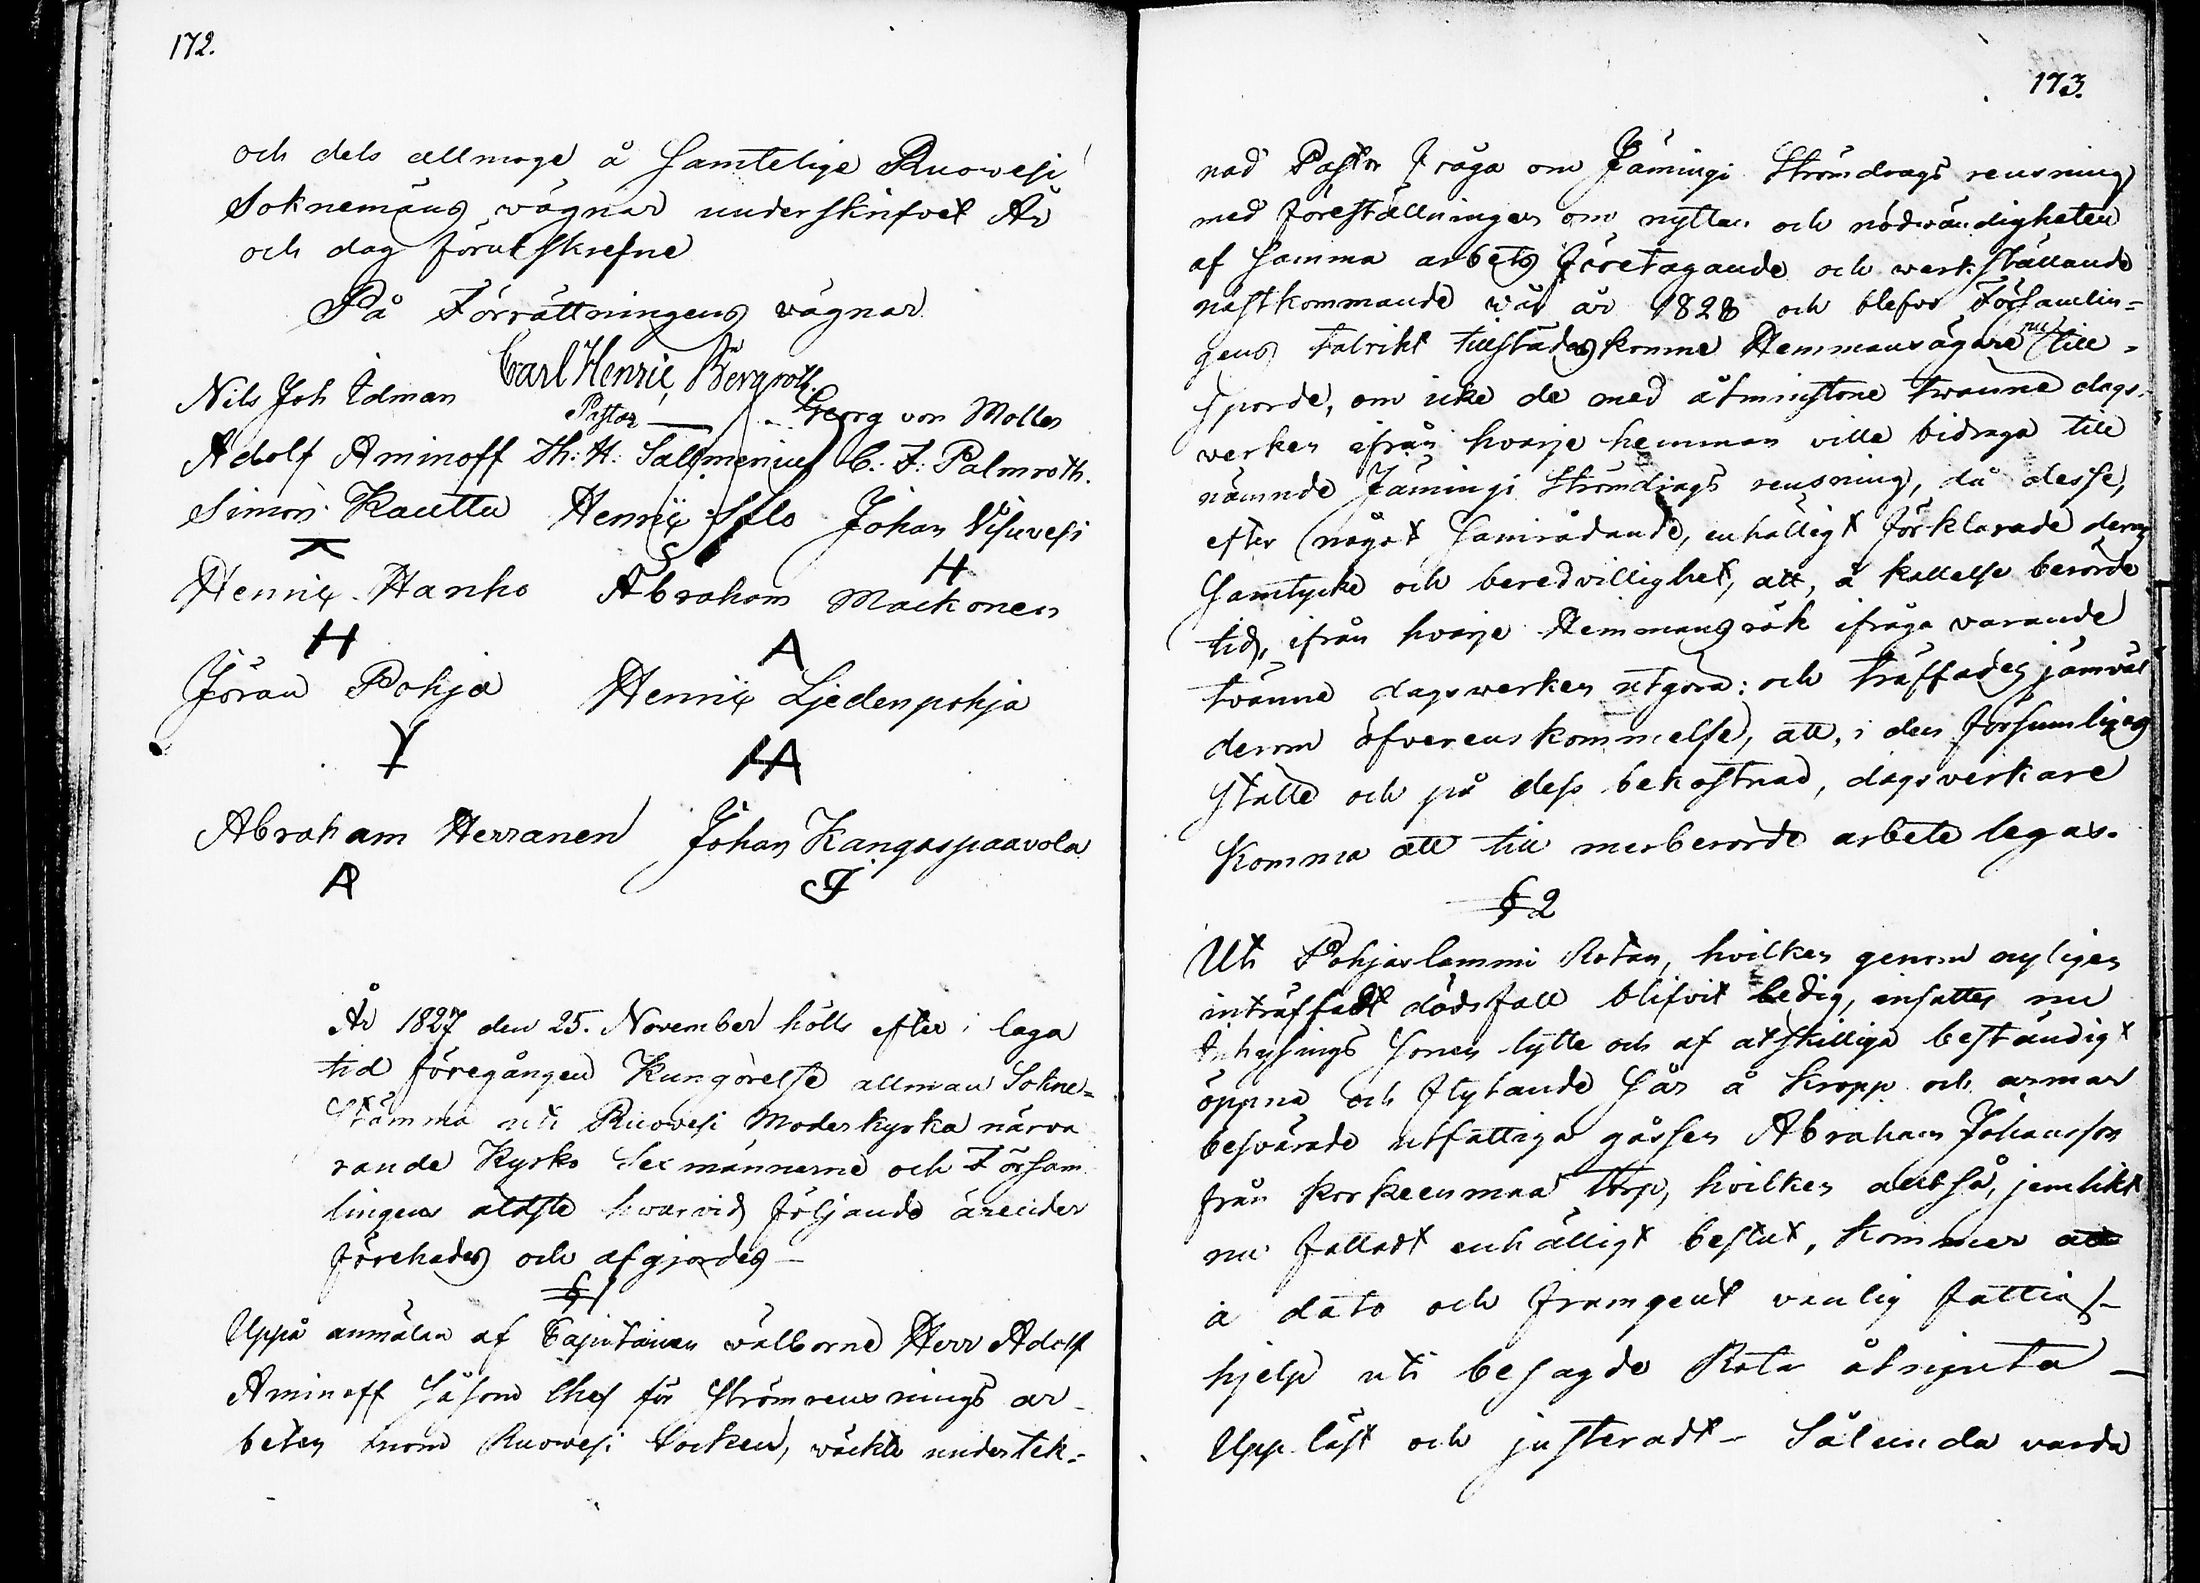 172.
och dels allmoge å samtelige Ruowesi
Soknemäns wägnar underskrifvet År
och dag förutskrefne
På Förrättningens vägnar
Carl Henric Bergroth.
Pastor
Nils Joh Idman
Georg von Moller
Adolf Aminoff Th: H: Sallmenius C: F: Palmroth.
Simon Kautta Henric Sflo Johan Visuvesi
H
Henric Hanho Abraham Mackonen
H A
Jöran Pohja Henric Ljedenpohja
HA
Abraham Herranen Johan Kangaspaavola
A J
År 1827 den 25. November hölls efter i laga
tid föregången Kungörelse allman Sokne=
stämma uti Ruowesi Moderkyrka närva
rande Kyrko Sexmännerne och Försam
lingens äldste hwarvid följande ärender
förehades och afgjordes —
§ 1
Uppå anmälan af Capitainen wälborne Herr Adolf
Aminoff såsom Chef för Strömrensnings ar-
beten inom Ruowesi Socken, wäckte undertek=
173.
nad Pastor fråga om Jämingi Strömdrags rensning
med föreställningen om nyttan och nödwändigheten
af samma arbets företagande och werkställande
nästkommande wår år 1828 och blefvo Församlin=
gens talrikt tillstädeskomne Hemmansägare nu till=
sporde, om icke de med åtminstone twänne dags-
verken ifrån hvarje hemman ville bidraga till
nämnde Jämingi Strömdrags rensning, då desse,
efter något samrådande, enhälligt förklarade deras
samtycke och beredvillighet, att, å kallelse berörde
tid, ifrån hvarje Hemmansrök ifråga varande
tvänne dagswerken utgöra: och träffades jämväl
derom öfverenskommelse, att, i den försumliges
ställe och på dess bekostnad, dagsverkare
komma att till merberörde arbete legas.
§ 2
Uti Pohjaslammi Rotan, hvilken genom nyligen
inträffadt dödsfall blifvit ledig, insattes nu
Inhysings Sonen lytte och af åtskilliga beständigt
öppna och flytande sår å kropp och armar
besvärade utfattiga gossen Abraham Johansson
från Korkeenmaa torp, hvilken altså, jemlikt
nu fattadt enhälligt beslut, kommer att
à dato och framgent vanlig fattig-
hjelp uti besagde Rota åtnjuta —
Uppläst och justeradt — Sålunda varda